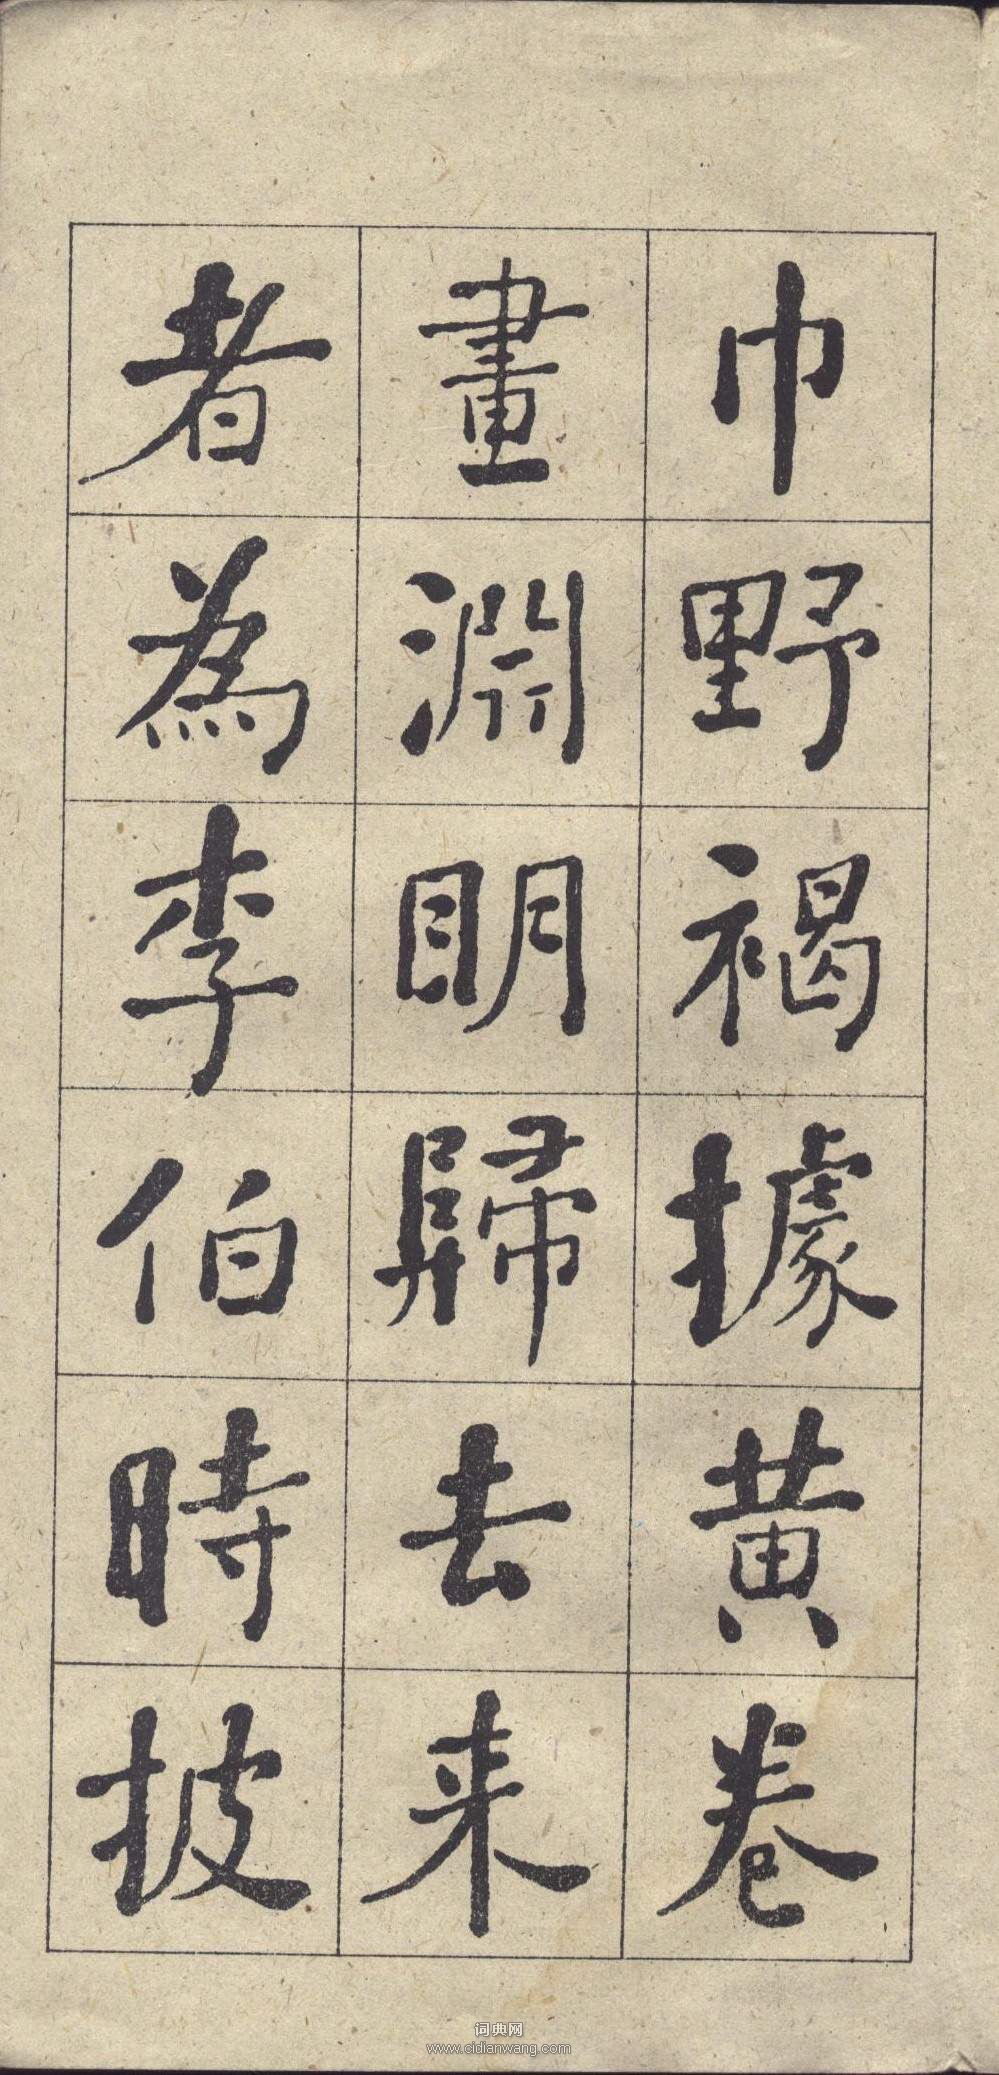 巾野褐據黄卷
畫淵明歸去来
者為李伯時披
词典网
www.cidianwang.com